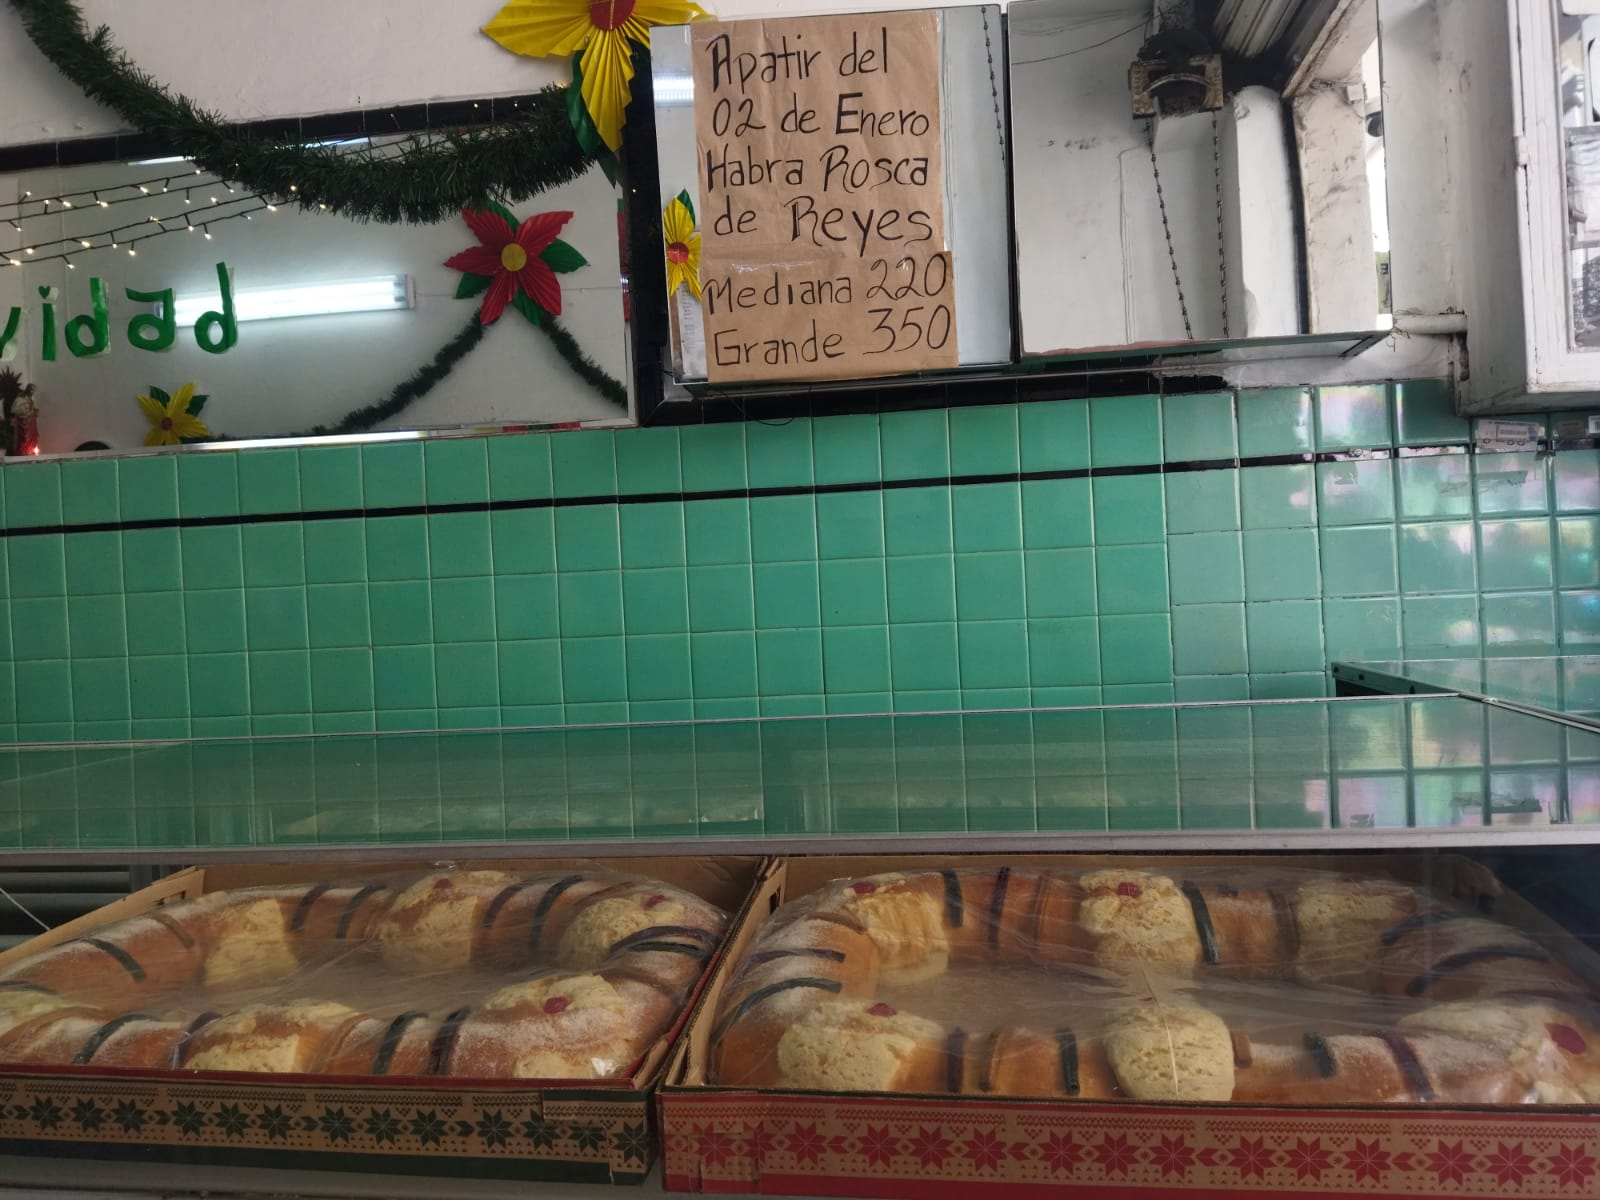 Apatir del
02 de Enero
Habra Rosca
de Reyes
Mediana 220
Grande 350
vidad